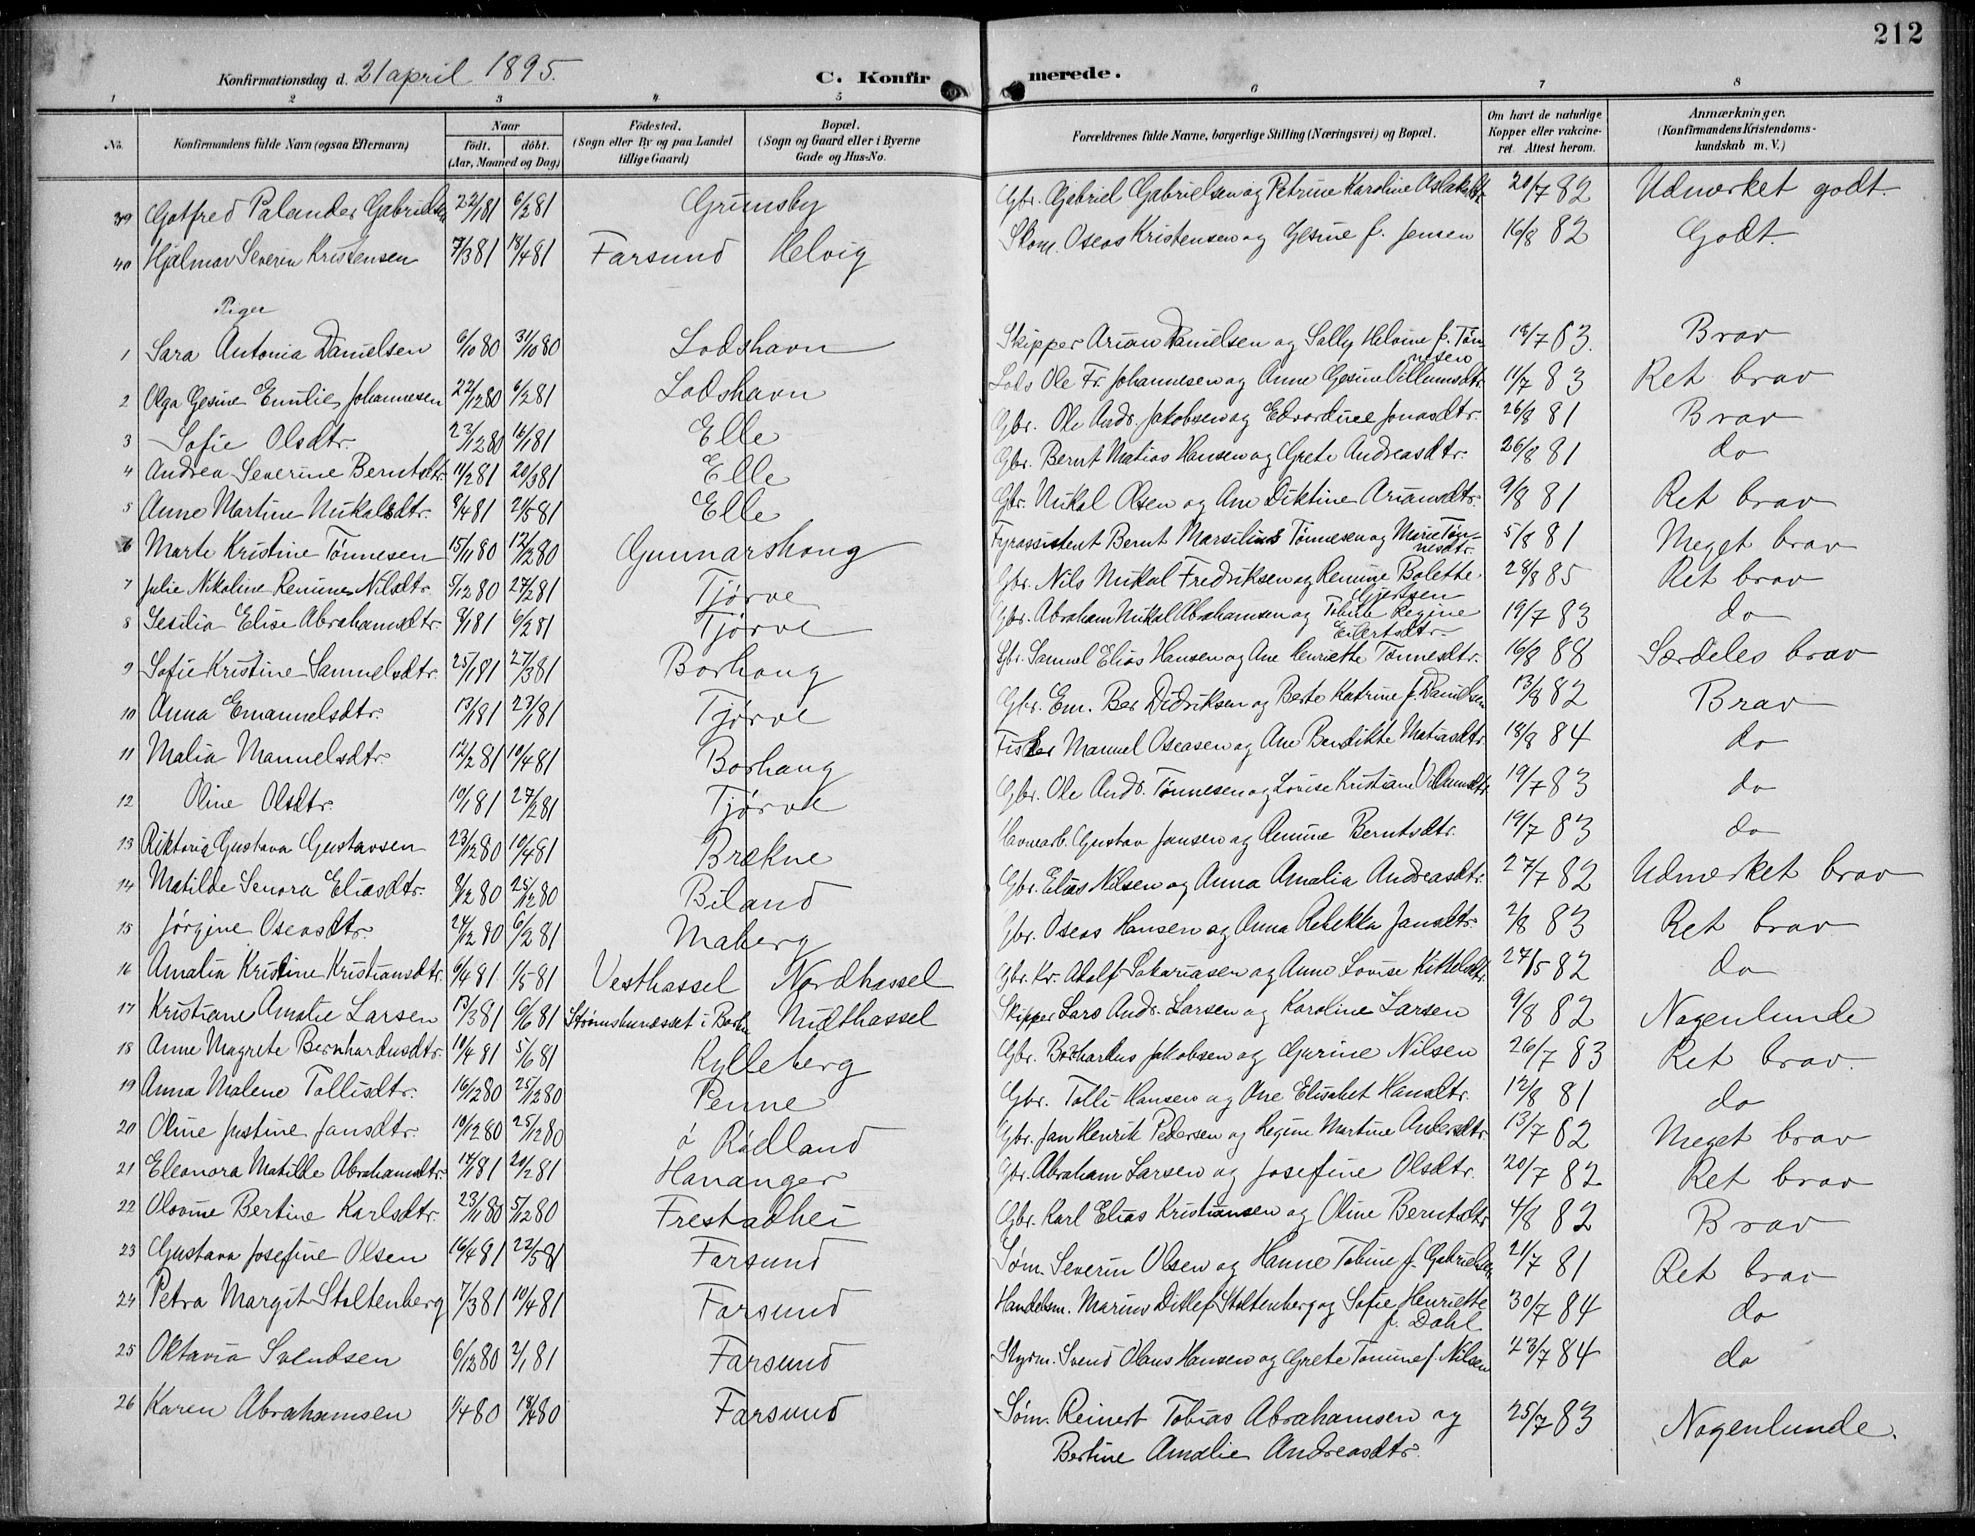 212
Konfirmationsdag d. 21 april 1895.
C. Konfirmerede.
1 2 3 4 5 6 7 8
No. Konfirmandens fulde Navn (ogsaa Efternavn) Naar født. døbt. (Aar, Maaned og Dag) Fødested. (Sogn eller By og paa Landet tillige Gaard) Bopæl. (Sogn og Gaard eller i Byerne Gade og Hus-No. Forældrenes fulde Navne, borgerlige Stilling (Næringsvei) og Bopæl. Om havt de naturlige Kopper eller vakcineret. Attest herom. Anmærkninger. (Konfirmandens Kristendomskundskab m. V.)
39 Gotfred Palander Gabrielsen 22/1 81 6/2 81 Grimsby Gbr. Gabriel Gabrielsen og Petrine Karoline Aslaksdtr 20/7 82 Udmerket godt.
40 Hjalmar Severin Kristensen 7/3 81 18/4 81 Farsund Helvig Skom. Oseas Kristensen og Gesine f. Jensen 16/8 82 Godt.
Piger
1 Sara Antonia Danielsen 6/10 80 31/10 80 Lodshavn Skipper Arian Danielsen og Sally Helvine f. Tønnesen 18/7 83. Brav
2 Olga Gesine Emilie Johannesen 22/12 80 6/2 81 Lodshavn Lods Ole Fr. Johannesen og Anne Gesine Villumsdtr. 11/7 83 Ret brav
3 Sofie Olsdtr. 23/12 80 16/1 81 Elle Gbr. Ole Andr. Jakobsen og Edvardine Jonasdtr. 26/8 81 Brav
4 Andrea Severine Berntsdtr. 11/2 81 20/3 81 Elle Gbr. Bernt Matias Hansen og Grete Andreasdtr. 26/8 81 do
5 Anne Martine Nikalsdtr. 9/4 81 21/5 81 Elle Gbr. Nikal Olsen og Ane Diktine Ariansdtr. 9/8 81 Ret brav
6 Marte Kristine Tønnesen 15/11 80 12/12 80 Gunnarshaug Fyrassistent Bernt Marsilius Tønnesen og Marie Tønnesdtr. 5/8 81 Meget brav
7 Julie Nikoline Remine Nilsdtr. 5/12 80 27/2 81 Tjørve Gbr. Nils Nikal Fredriksen og Remine Bolette Gjertsen 28/8 85 Ret brav
8 Sesilia Elise Abrahamsdtr. 9/1 81 6/2 81 Tjørve Gbr. Abraham Nikal Abrahamsen og Tobine Regine Eilertsdtr. 19/7 83 do
9 Sofie Kristine Samuelsdtr. 25/1 81 27/3 81 Borhaug Gbr. Samuel Elias Hansen og Ane Henriette Tønnesdtr. 16/8 88 Særdeles brav
10 Anna Emanuelsdtr. 13/1 81 23/1 81 Tjørve Gbr. Em. Ber Didriksen og Berte Katrine f. Danielsen 13/8 82 Brav
11 Malia Manuelsdtr. 12/2 81 10/4 81 Borhaug Fisker Manuel Oseasen og Ane Bendikte Matiasdtr. 18/8 84 do
12 Oline Olsdtr. 10/1 81 27/2 81 Tjørve Gbr. Ole Andr. Tønnesen og Lovise Kristiane Villumsdtr. 19/7 83 do
13 Riktoria Gustava Gustavsen 23/12 80 10/4 81 Brekne Havnearb. Gustav Jansen og Remine Berntsdtr. 19/7 83 do
14 Matilde Senora Eliasdtr. 9/12 80 25/12 80 Biland Gbr. Elias Nilsen og Anna Amalia Andreasdtr. 27/7 82 Udmerket brav
15 Jørgine Oseasdtr. 24/12 80 6/2 81 Maberg Gbr. Oseas Hansen og Anna Rebekka Jansdtr. 2/8 83 Ret brav
16 Amalia Kristine Kristiansdtr. 6/4 81 1/5 81 Vesthassel Nordhassel Gbr. Kr. Adolf Sakariasen og Anne Lovise Kittelsdtr. 27/5 82 do
17 Kristiane Amalie Larsen 17/3 81 6/6 81 Midthassel Skipper Lars Andr. Larsen og Karoline Larsen 9/8 82 Nogenlunde
18 Anne Magrete Bernhardusdtr. 10/4 81 5/6 81 Kylleberg Gbr. Bernhardus Jakobsen og Gurine Nilsen 26/7 83 Ret brav.
19 Anna Malene Tollisdtr. 16/12 80 25/12 80 Penne Gbr. Tolli Hansen og Ane Elisabet Hansdtr. 12/8 81 do
20 Oline Justine Jansdtr. 10/12 80 25/12 80 ø Rødland Gbr. Jan Henrik Pedersen og Regine Martine Andersdtr. 13/7 82 Meget brav
21 Eleonora Matilde Abrahamsdtr. 17/1 81 20/2 81 Hananger Gbr. Abraham Larsen og Josefine Olsdtr. 20/7 82 Ret brav
22 Olovine Bertine Karlsdtr. 23/11 80 5/12 80 Frestadhei Gbr. Karl Elias Kristiansen og Oline Berntsdtr. 4/8 82 Brav
23 Gustava Josefine Olsen 16/4 81 22/5 81 Farsund Søm. Severin Olsen og Hanne Tobine f. Gabrielsen 21/7 81 Ret brav
24 Petra Margit Stoltenberg 7/3 81 10/4 81 Farsund Handelsm. Marius Ditlef Stoltenberg og Sofie Henriette f. Dahl 30/7 84 do
25 Oktavia Svendsen 6/12 80 2/1 81 Farsund Styrm. Svend Olaus Hansen og Grete Tomine f. Nilsen 23/7 84 do
26 Karen Abrahamsen 1/4 80 18/4 80 Farsund Søm. Reinert Tobias Abrahamsen og Bertine Amalie Andreasdtr. 25/7 83 Nogenlunde.